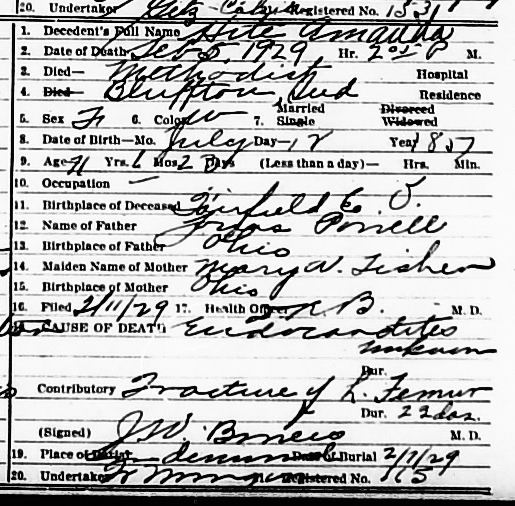 20. Undertaker Registered No. 1531
1. Decedent's Full Name Hite Amanda
2. Date of Death Feb 5, 1929 Hr. 2 P M.
3. Died— Methodist Hospital
4. Died— Bluffton, Ind Residence
5. Sex F 6. Color W 7. Married Single Divorced Widowed
8. Date of Birth—Mo. July Day—12 Year 1837
9. Age 91 Yrs. 6 Mos. 2 Days (Less than a day)— Hrs. Min.
10. Occupation —
11. Birthplace of Deceased Fairfield Co O.
12. Name of Father Powell
13. Birthplace of Father Ohio
14. Maiden Name of Mother Mary A. Fisher
15. Birthplace of Mother Ohio
16. Filed 2/11/29 17. Health Officer B. M. D.
CAUSE OF DEATH Endocarditis
unknown
Dur.
Contributory Fracture of L. Femur
Dur. 22 das.
(Signed) J.W. M. D.
19. Place of Burial Date of Burial 2/7/29
20. Undertaker Registered No. 165